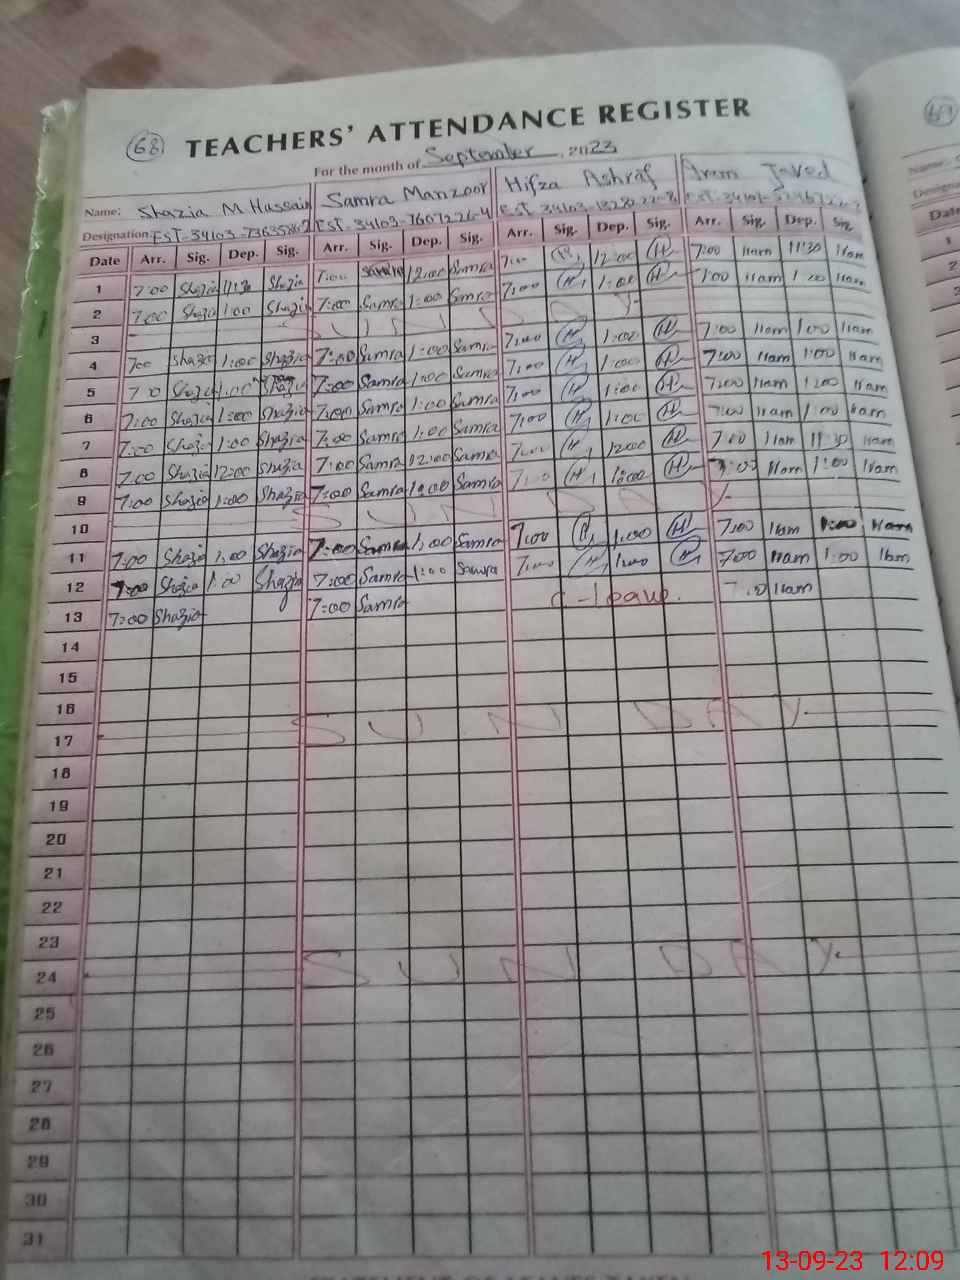 68 TEACHERS' ATTENDANCE REGISTER
For the month of September, 2023
Name: Shazia M Hussain Samra Manzoor Hifza Ashraf Iram Javed
Designation: EST-34103- EST-34103-7607226-4 EST-34103-
Date Arr. Sig. Dep. Sig. Arr. Sig. Dep. Sig. Arr. Sig. Dep. Sig. Arr. Sig. Dep. Sig.
1 7:00 Shazia 11:30 Shazia 7:00 Samra 12:00 Samra 7:00 H 12:00 H 7:00 Iram 11:30 Iram
2 7:00 Shazia 1:00 Shazia 7:00 Samra 1:00 Samra 7:00 H 1:00 H 7:00 Iram 1:00 Iram
3 SUNDAY
4 7:00 Shazia 1:00 Shazia 7:00 Samra 1:00 Samra 7:00 H 1:00 H 7:00 Iram 1:00 Iram
5 7:00 Shazia 1:00 Shazia 7:00 Samra 1:00 Samra 7:00 H 1:00 H 7:00 Iram 1:00 Iram
6 7:00 Shazia 1:00 Shazia 7:00 Samra 1:00 Samra 7:00 H 1:00 H 7:00 Iram 1:00 Iram
7 7:00 Shazia 1:00 Shazia 7:00 Samra 1:00 Samra 7:00 H 1:00 H 7:00 Iram 1:00 Iram
8 7:00 Shazia 12:00 Shazia 7:00 Samra 12:00 Samra 7:00 H 12:00 H 7:00 Iram 11:30 Iram
9 7:00 Shazia 1:00 Shazia 7:00 Samra 1:00 Samra 7:00 H 1:00 H 7:00 Iram 1:00 Iram
10 SUNDAY
11 7:00 Shazia 1:00 Shazia 7:00 Samra 1:00 Samra 7:00 H 1:00 H 7:00 Iram 1:00 Iram
12 7:00 Shazia 1:00 Shazia 7:00 Samra 1:00 Samra 7:00 H 1:00 H 7:00 Iram 1:00 Iram
13 7:00 Shazia 7:00 Samra C-leave. 7:00 Iram
14
15
16
17 SUNDAY
18
19
20
21
22
23
24 SUNDAY
25
26
27
28
29
30
31
69
Name:
Date
1
2
3
13-09-23 12:09